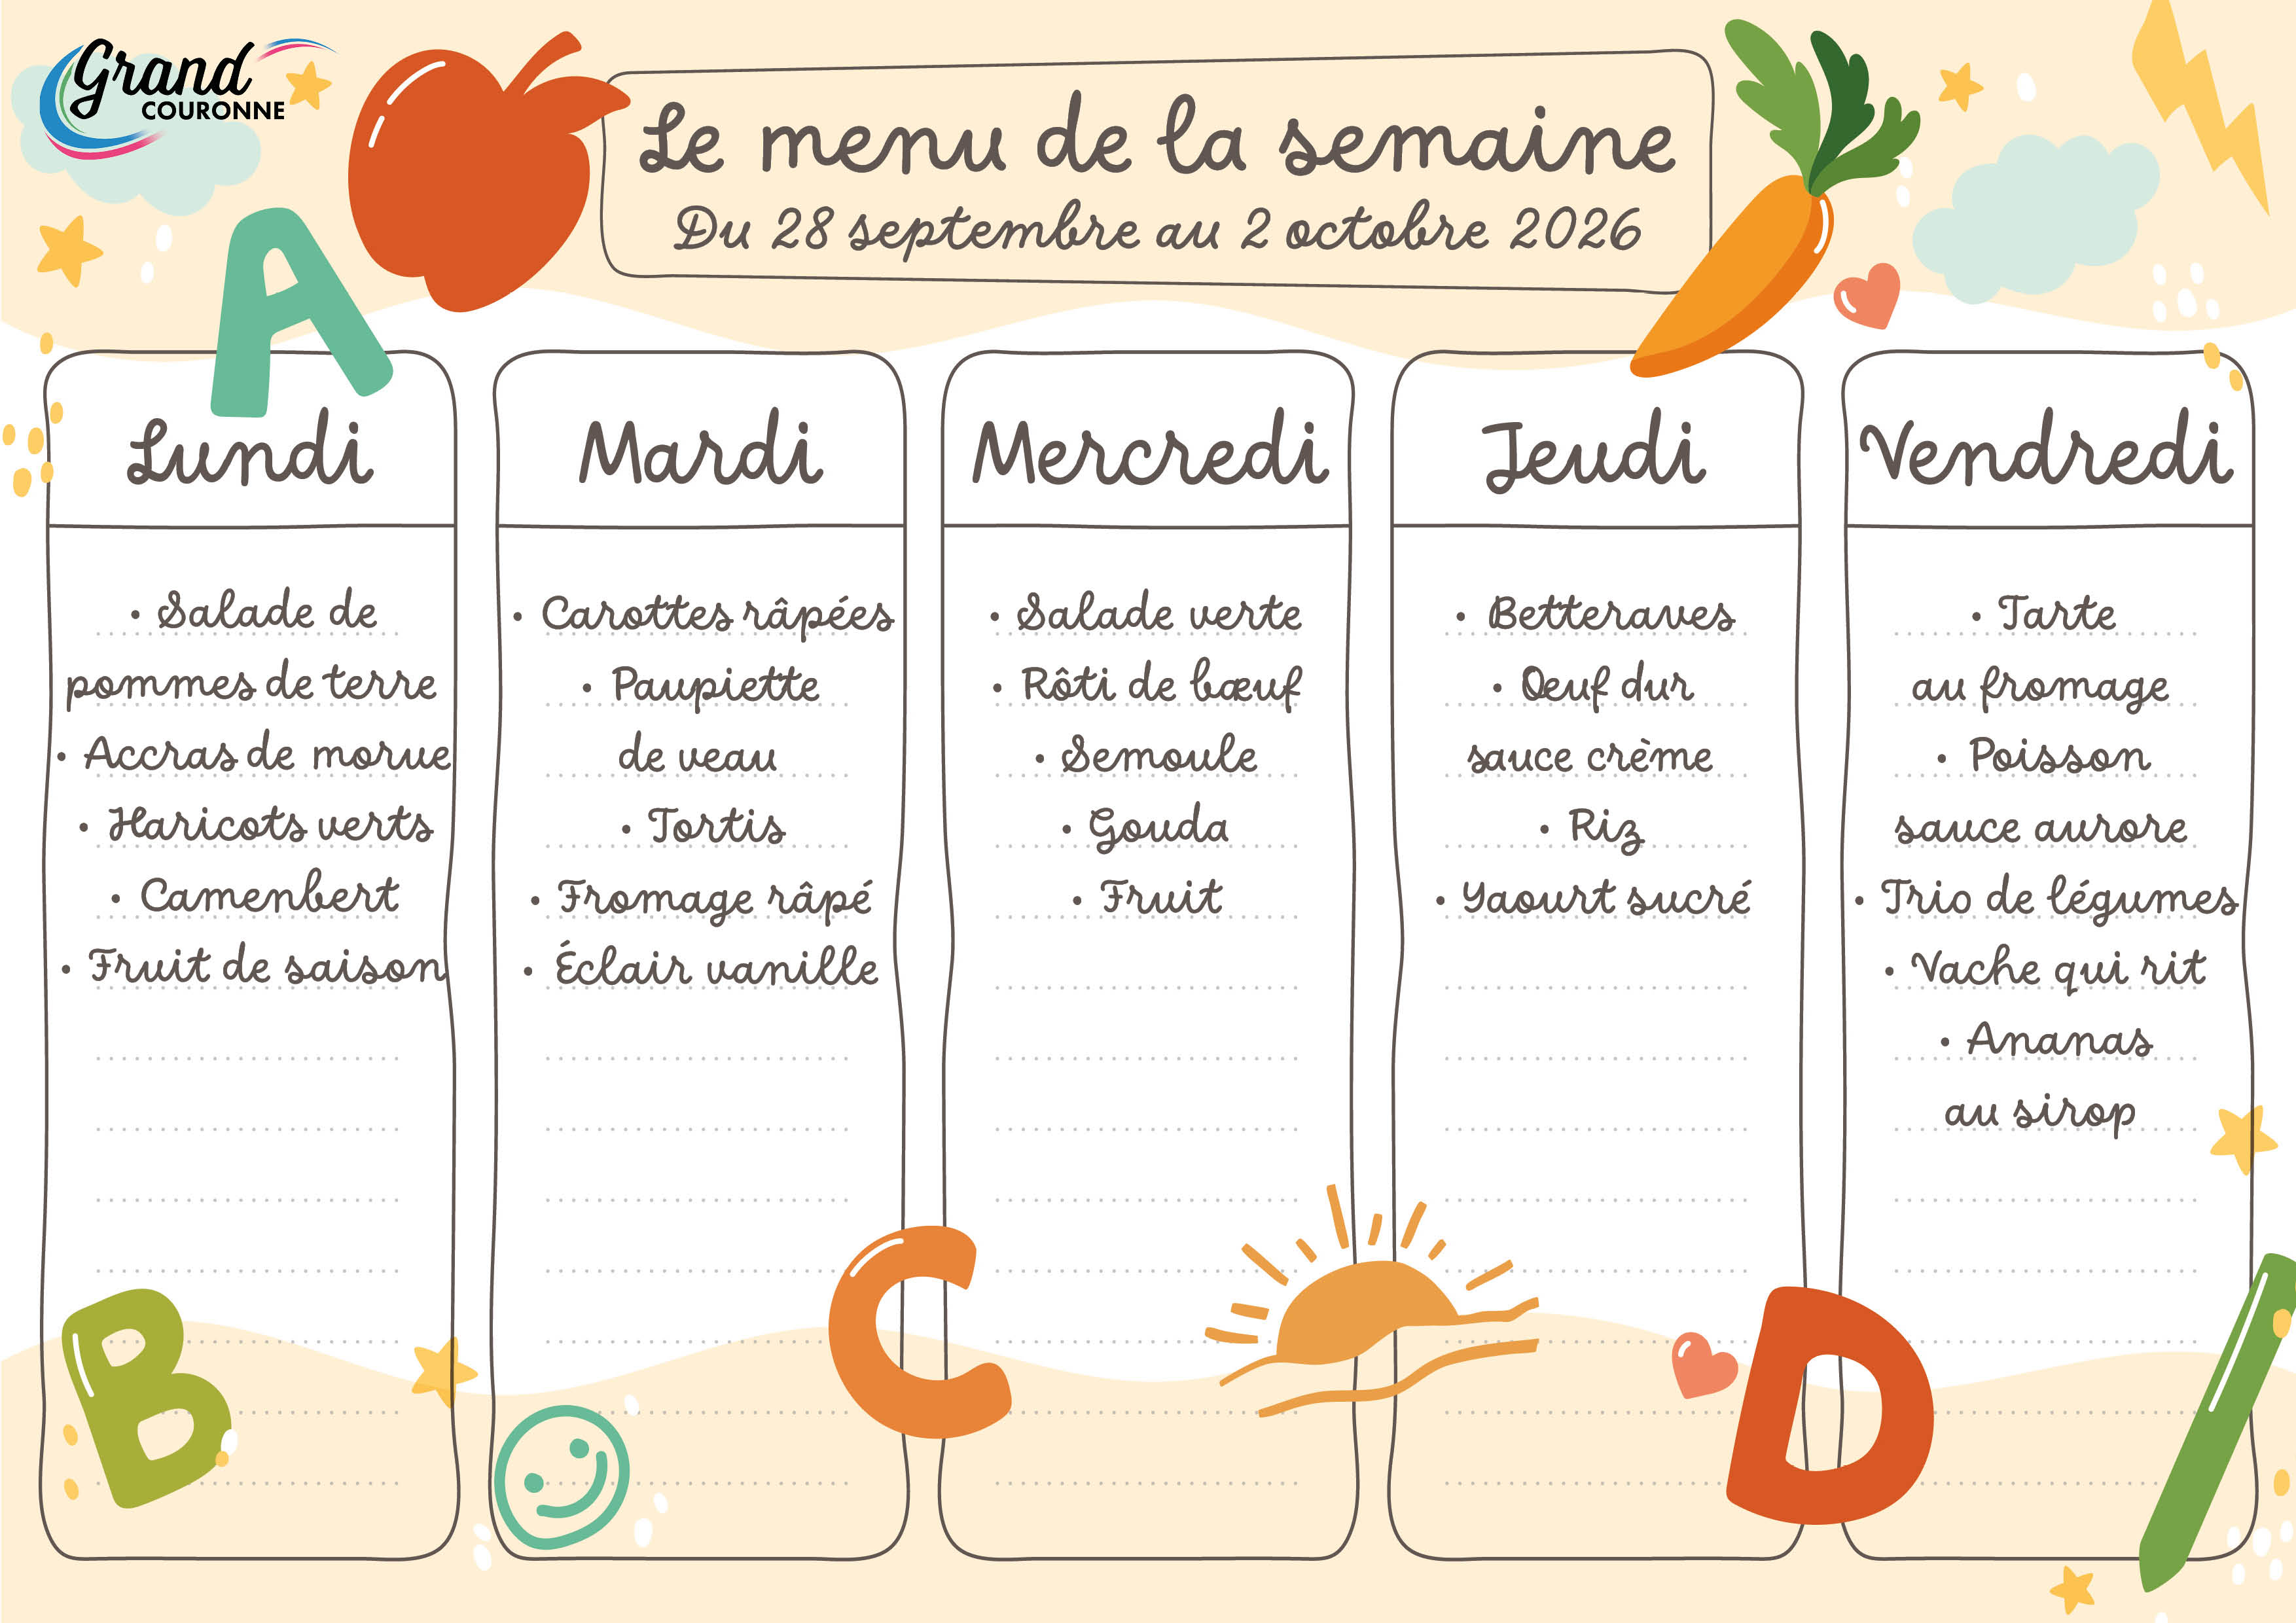 Grand
COURONNE
Le menu de la semaine
Du 28 septembre au 2 octobre 2026
A
Lundi
• Salade de
pommes de terre
• Accras de morue
• Haricots verts
• Camenbert
• Fruit de saison
Mardi
• Carottes râpées
• Paupiette
de veau
• Tortis
• Fromage râpé
• Éclair vanille
Mercredi
• Salade verte
• Rôti de bœuf
• Semoule
• Gouda
• Fruit
Jeudi
• Betteraves
• Oeuf dur
sauce crème
• Riz
• Yaourt sucré
Vendredi
• Tarte
au fromage
• Poisson
sauce aurore
• Trio de légumes
• Vache qui rit
• Ananas
au sirop
B
C
D